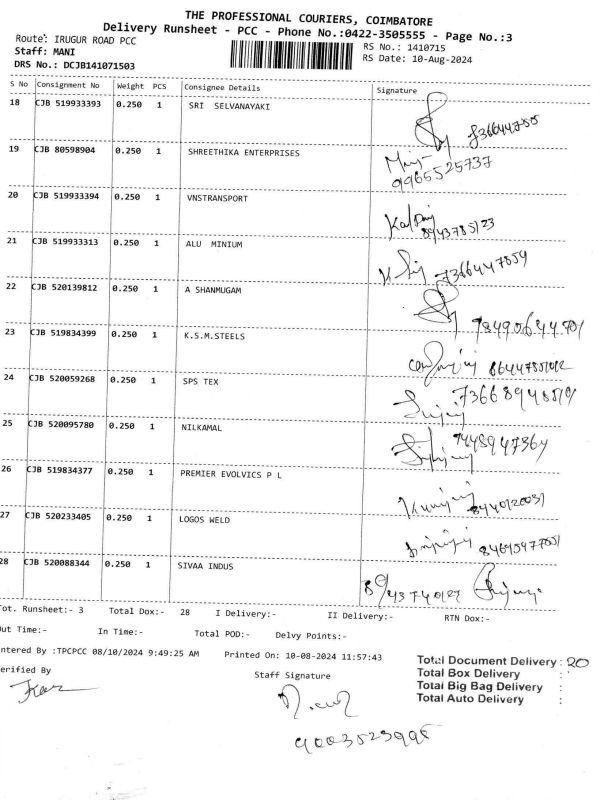 THE PROFESSIONAL COURIERS, COIMBATORE
Delivery Runsheet - PCC - Phone No.:0422-3505555 - Page No.:3
Route: IRUGUR ROAD PCC RS No.: 1410715
Staff: MANI RS Date: 10-Aug-2024
DRS No.: DCJB141071503
S No Consignment No Weight PCS Consignee Details Signature
18 CJB 519933393 0.250 1 SRI SELVANAYAKI
19 CJB 80598904 0.250 1 SHREETHIKA ENTERPRISES
9965525737
20 CJB 519933394 0.250 1 VNSTRANSPORT
8943785123
21 CJB 519933313 0.250 1 ALU MINIUM
7366447859
22 CJB 520139812 0.250 1 A SHANMUGAM
23 CJB 519834399 0.250 1 K.S.M.STEELS
24 CJB 520059268 0.250 1 SPS TEX
25 CJB 520095780 0.250 1 NILKAMAL
7448947364
26 CJB 519834377 0.250 1 PREMIER EVOLVICS P L
27 CJB 520233405 0.250 1 LOGOS WELD
28 CJB 520088344 0.250 1 SIVAA INDUS
Tot. Runsheet:- 3 Total Dox:- 28 I Delivery:- II Delivery:- RTN Dox:-
Out Time:- In Time:- Total POD:- Delvy Points:-
ntered By :TPCPCC 08/10/2024 9:49:25 AM Printed On: 10-08-2024 11:57:43
erified By Staff Signature
Total Document Delivery : 20
Total Box Delivery :
Total Big Bag Delivery :
Total Auto Delivery :
9003523995